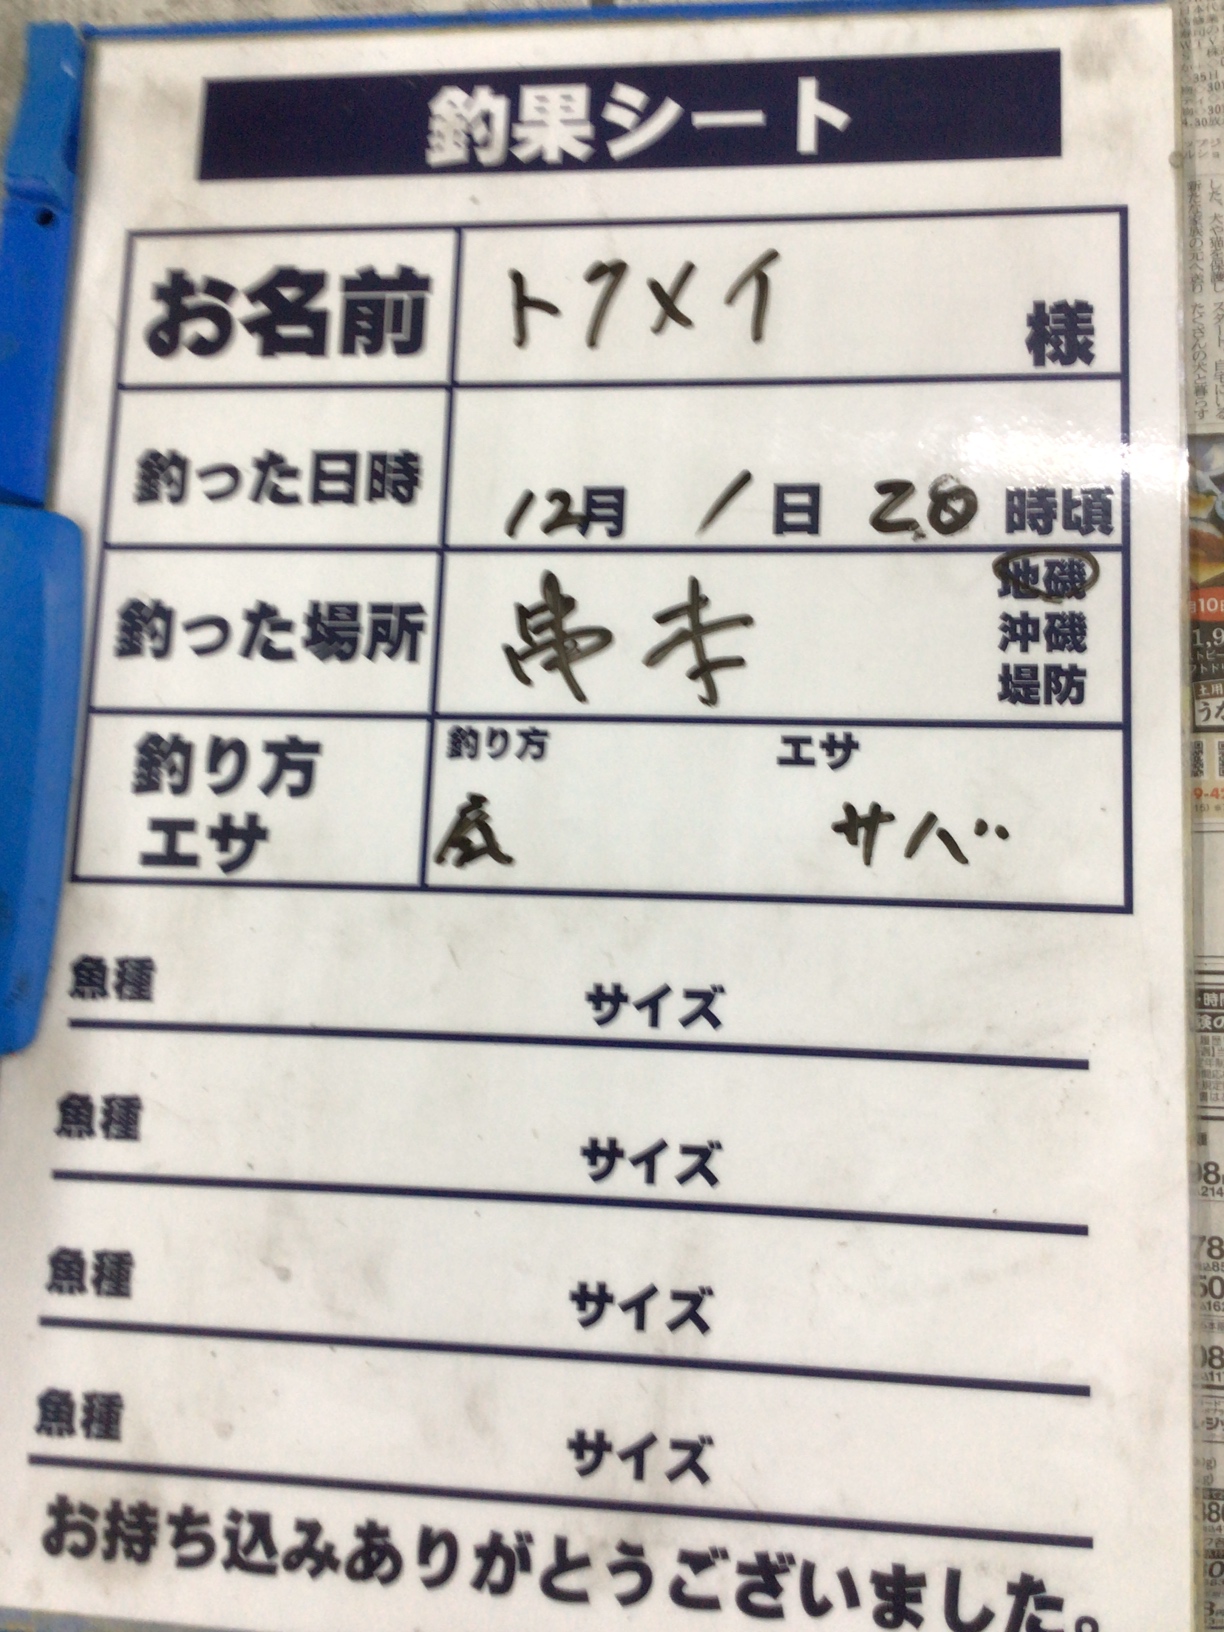 釣果シート
お名前 トクメイ 様
釣った日時 12月 1日 20時頃
釣った場所 串本 地磯
沖磯
堤防
釣り方 エサ
釣り方
エサ
底 サバ
魚種 サイズ
魚種 サイズ
魚種 サイズ
魚種 サイズ
お持ち込みありがとうございました。